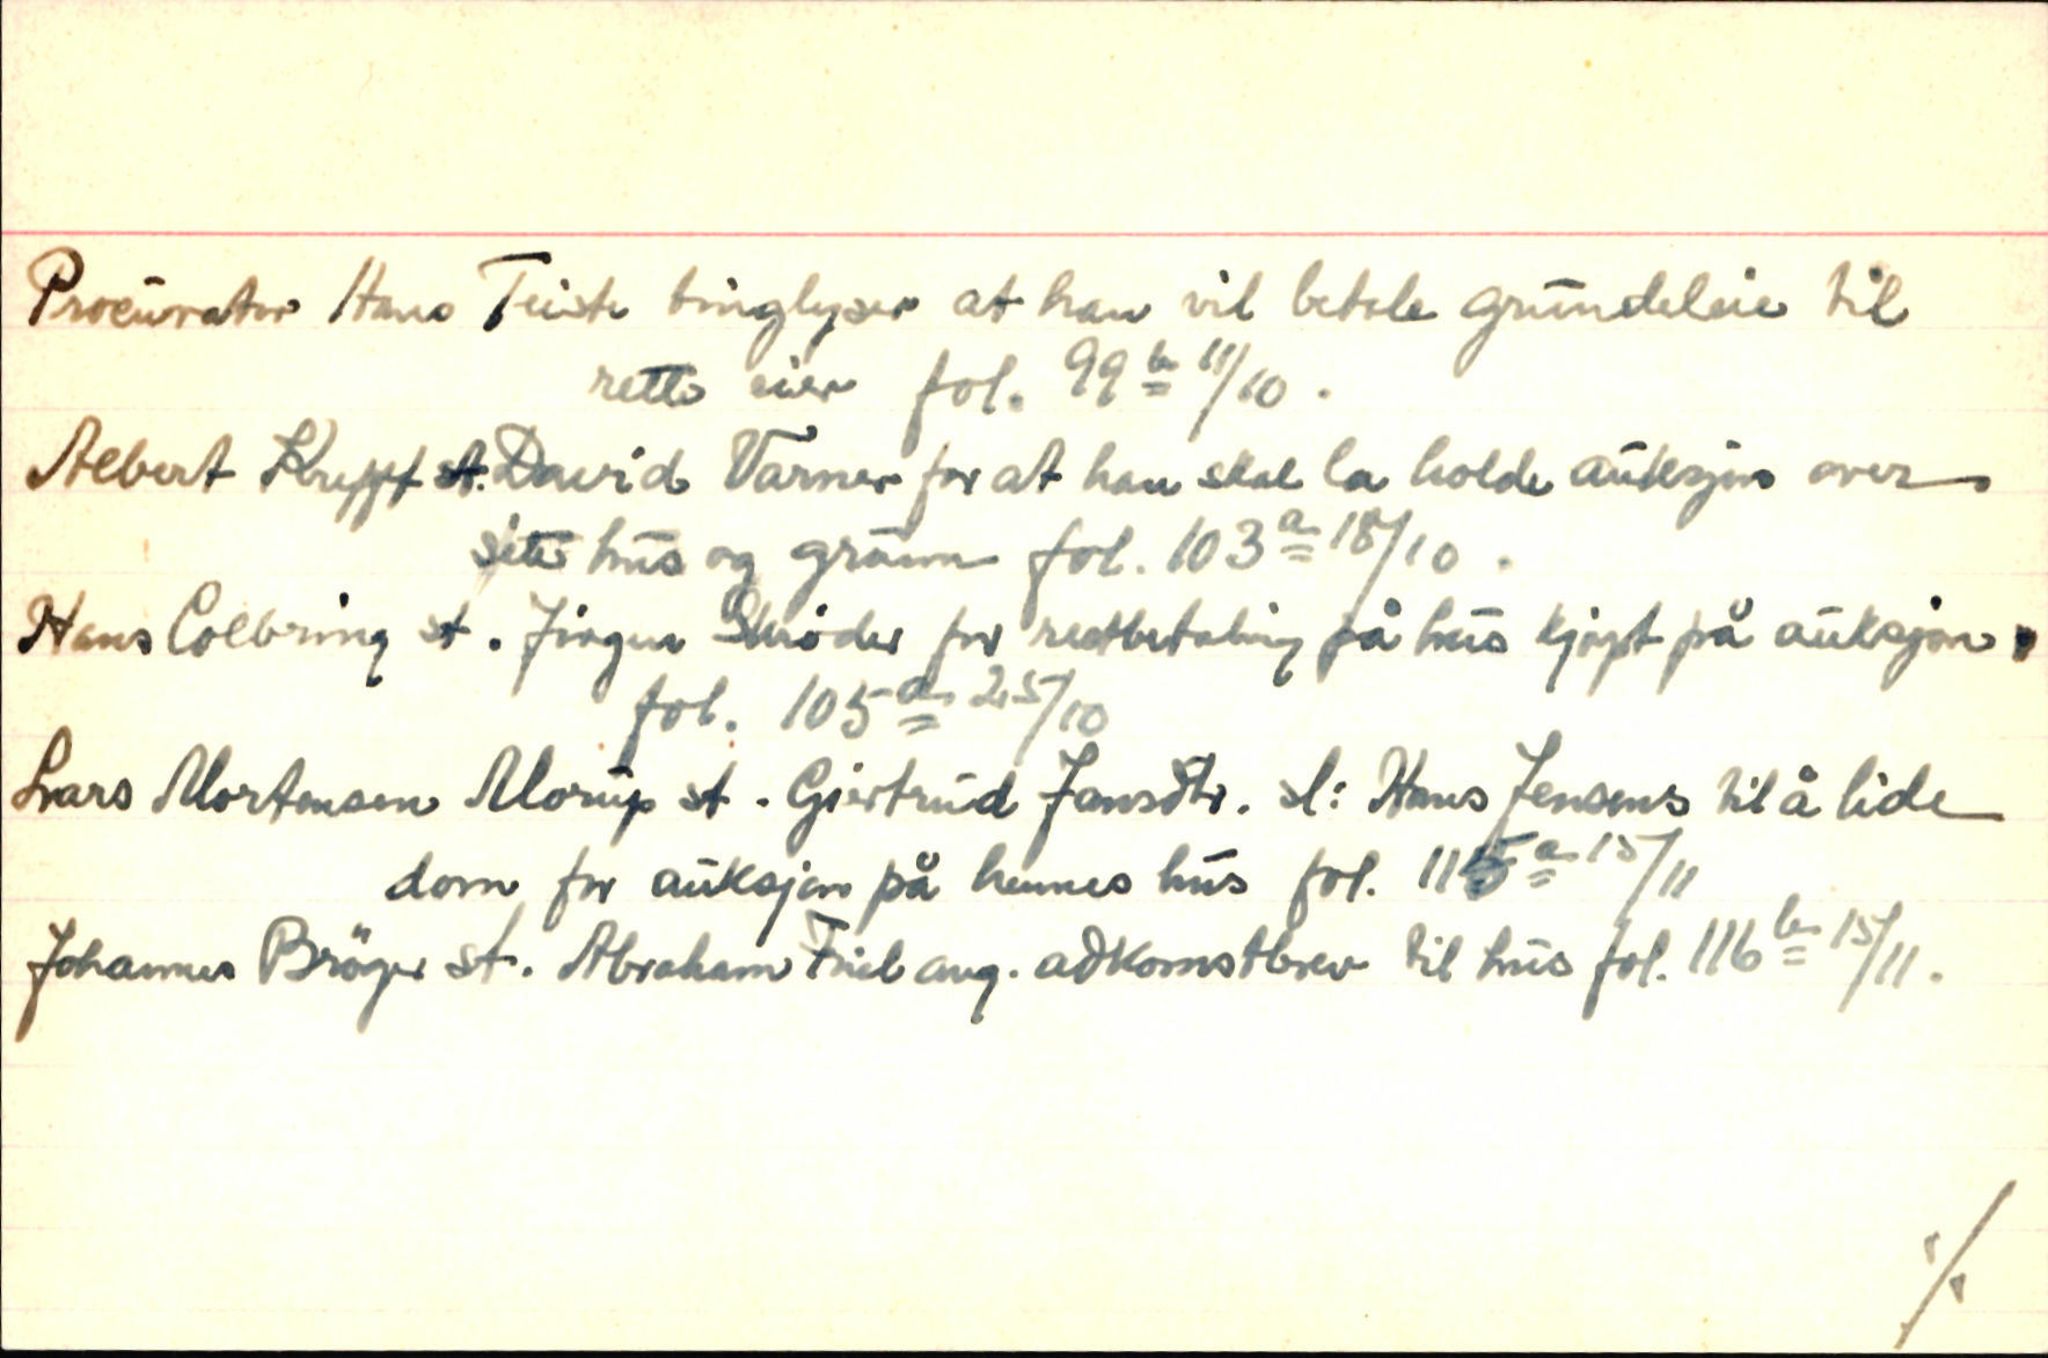 Procurator Hans Teiste tinglyser at han vil betale grundeleie til
rette eier fol. 99 b 11/10.
Albert Krupp st. David Varner for at han skal la holde auksjon over
sitt hus og grunn fol. 103 a 18/10.
Hans Colbring st. Jørgen Skrøder for restbetaling på hus kjøpt på auksjon.
fol. 105 a 25/10
Lars Mortensen Morup st. Giertrud Jansdtr. sl: Hans Jensens til å lide
dom for auksjon på hennes hus fol. 115 a 15/11
Johannes Brøger st. Abraham Friel ang. adkomstbrev til hus fol. 116 b 15/11.
·/.